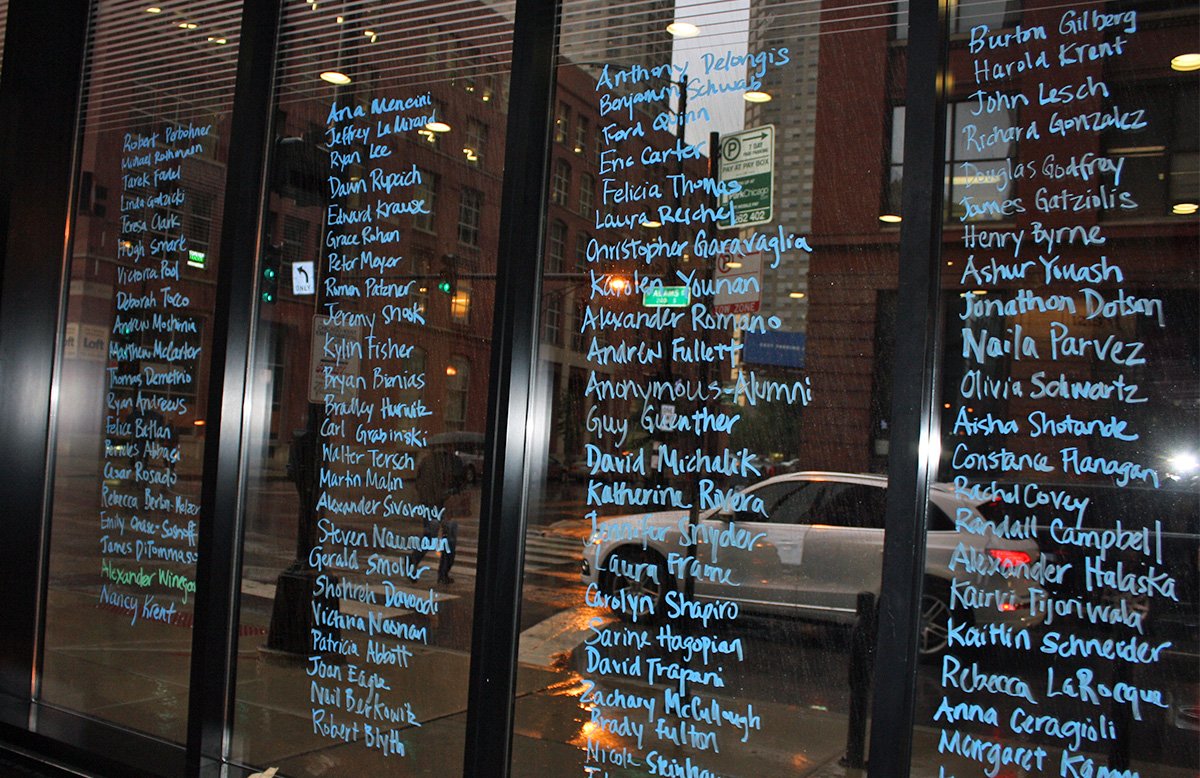 Robert Perbohner
Michael Rothmann
Tarek Fadel
Linda
Teresa Clark
Hugh Smart
Victoria Pool
Deborah Tocco
Andrew Moshinia
Matthew McCarter
Thomas Demetrio
Ryan Andrews
Felice Batlan
Pericles Abbasi
Cesar Rosado
Rebecca Berlin-Melzer
Emily Chase-Sosnoff
James DiTommaso
Alexander
Nancy Krent
Ana Mencini
Jeffrey
Ryan Lee
Dawn Rupcich
Edward Krause
Grace Rohan
Peter Meyer
Roman Patzner
Jeremy Shook
Kylin Fisher
Bryan Bienias
Bradley Hurwitz
Carl Grabinski
Walter Tersch
Martin Malin
Alexander
Steven Naumann
Gerald Smoller
Shohreh Davoodi
Victoria Noonan
Patricia Abbott
Joan Eagle
Neil Berkowitz
Robert Blyth
ONLY
Anthony Delongis
Benjamin Schwab
Ford Quinn
Eric Carter
Felicia Thomas
Laura Reschel
Christopher Garavaglia
Karolen Younan
Alexander Romano
Andrew Fullett
Anonymous-Alumni
Guy Guenther
David Michalik
Katherine Rivera
Jennifer Snyder
Laura Frame
Carolyn Shapiro
Sarine Hagopian
David Trapani
Zachary McCullough
Brady Fulton
Nicole
P
7 DAY
PAY AT PAY BOX
ParkChicago
ADAMS
Burton Gilberg
Harold Krent
John Lesch
Richard Gonzalez
Douglas Godfrey
James Gatziolis
Henry Byrne
Ashur Youash
Jonathon Dotson
Naila Parvez
Olivia Schwartz
Aisha Shotande
Constance Flanagan
Rachel Covey
Randall Campbell
Alexander Halaska
Kairvi Fijoriwala
Kaitlin Schneider
Rebecca LaRocque
Anna Ceragioli
Margaret